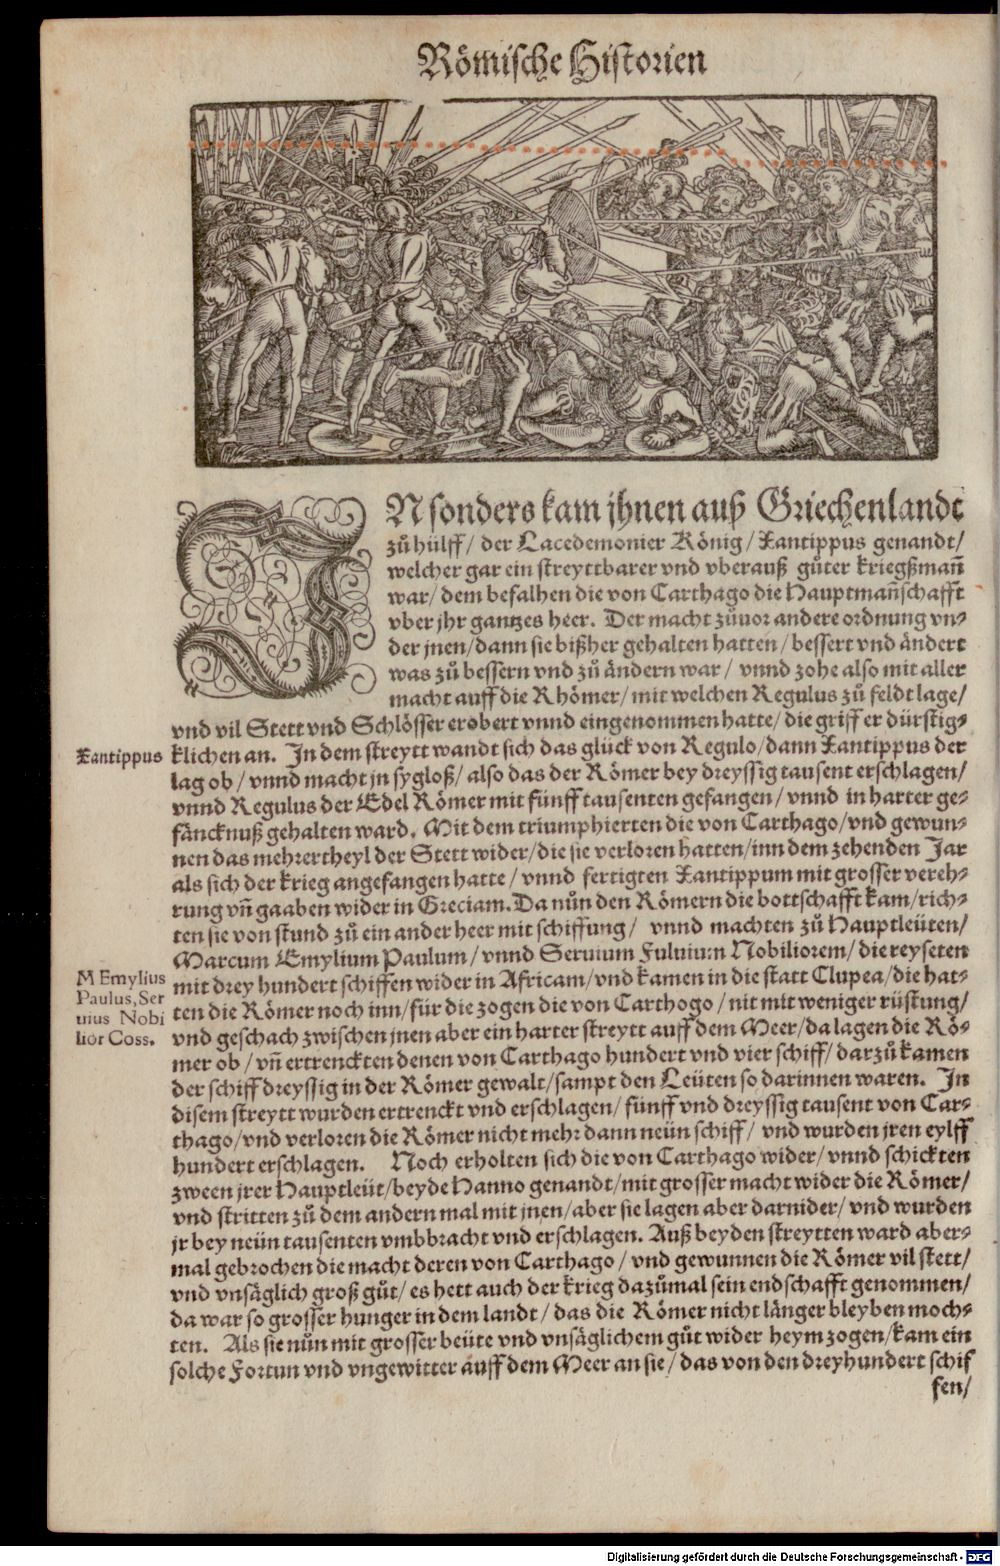 Römische Historien
IN sonders kam jhnen auß Griechenlandt
zů hülff/ der Lacedemonier König/ Xantippus genandt/
welcher gar ein streyttbarer vnd vberauß gůter kriegßmañ
war/ dem befalhen die von Carthago die Hauptmañschafft
vber jhr gantzes heer. Der macht zůuor andere ordnung vn⸗
der jnen/ dann sie bißher gehalten hatten/ bessert vnd ändert
was zů bessern vnd zů ändern war/ vnnd zohe also mit aller
macht auff die Rhömer/ mit welchen Regulus zů feldt lage/
vnd vil Stett vnd Schlösser erobert vnnd eingenommen hatte/ die griff er dürstig⸗
Xantippus
klichen an. In dem streytt wandt sich das glück von Regulo/ dann Xantippus der
lag ob/ vnnd macht jn sygloß/ also das der Römer bey dreyssig tausent erschlagen/
vnnd Regulus der Edel Römer mit fünff tausenten gefangen/ vnnd in harter ge⸗
fäncknuß gehalten ward. Mit dem triumphierten die von Carthago/ vnd gewun⸗
nen das mehrertheyl der Stett wider/ die sie verloren hatten/ inn dem zehenden Jar
als sich der krieg angefangen hatte/ vnnd fertigten Xantippum mit grosser vereh⸗
rung vñ gaaben wider in Greciam. Da nůn den Römern die bottschafft kam/ rich⸗
ten sie von stund zů ein ander heer mit schiffung/ vnnd machten zů Hauptleüten/
Marcum Emylium Paulum/ vnnd Seruium Fuluium Nobiliorem/ die reyseten
M Emylius
Paulus, Ser
uius Nobi
lior Coss.
mit drey hundert schiffen wider in Africam/ vnd kamen in die statt Clupea/ die hat⸗
ten die Römer noch inn/ für die zogen die von Carthogo/ nit mit weniger rüstung/
vnd geschach zwischen jnen aber ein harter streytt auff dem Meer/ da lagen die Rö⸗
mer ob/ vñ ertrenckten denen von Carthago hundert vnd vier schiff/ darzů kamen
der schiff dreyssig in der Römer gewalt/ sampt den Leüten so darinnen waren. In
disem streytt wurden ertrenckt vnd erschlagen/ fünff vnd dreyssig tausent von Car⸗
thago/ vnd verloren die Römer nicht mehr dann neün schiff/ vnd wurden jren eylff
hundert erschlagen. Noch erholten sich die von Carthago wider/ vnnd schickten
zween jrer Hauptleüt/ beyde Hanno genandt/ mit grosser macht wider die Römer/
vnd stritten zů dem andern mal mit jnen/ aber sie lagen aber darnider/ vnd wurden
jr bey neün tausenten vmbbracht vnd erschlagen. Auß beyden streytten ward aber⸗
mal gebrochen die macht deren von Carthago/ vnd gewunnen die Römer vil stett/
vnd vnsäglich groß gůt/ es hett auch der krieg dazůmal sein endschafft genommen/
da war so grosser hunger in dem landt/ das die Römer nicht länger bleyben moch⸗
ten. Als sie nůn mit grosser beüte vnd vnsäglichem gůt wider heym zogen/ kam ein
solche Fortun vnd vngewitter auff dem Meer an sie/ das von den dreyhundert schif
fen/
Digitalisierung gefördert durch die Deutsche Forschungsgemeinschaft - DFG